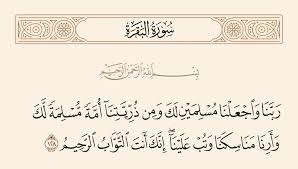 سُورَةُ البَقَرَةِ
بِسْمِ اللَّهِ الرَّحْمَٰنِ الرَّحِيمِ
رَبَّنَا وَٱجْعَلْنَا مُسْلِمَيْنِ لَكَ وَمِن ذُرِّيَّتِنَآ أُمَّةً مُّسْلِمَةً لَّكَ
وَأَرِنَا مَنَاسِكَنَا وَتُبْ عَلَيْنَآ ۖ إِنَّكَ أَنتَ ٱلتَّوَّابُ ٱلرَّحِيمُ ١٢٨